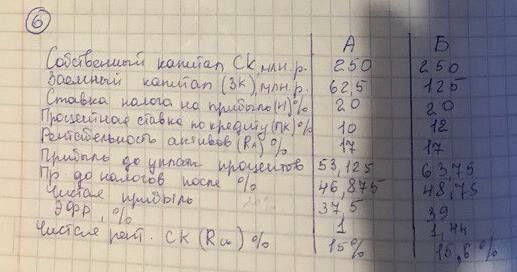 6
А Б
Собственный капитал СК, млн. р. 250 250
Заемный капитал (ЗК), млн. р. 62,5 125
Ставка налога на прибыль (Н) % 20 20
Процентная ставка по кредиту (ПК) % 10 12
Рентабельность активов (RA) % 17 17
Прибыль до уплаты процентов 53,125 63,75
Пр до налогов после % 46,875 48,75
Чистая прибыль 37,5 39
ЭФР, % 1 1,44
Чистая рент. СК (Rск) % 15% 15,6%